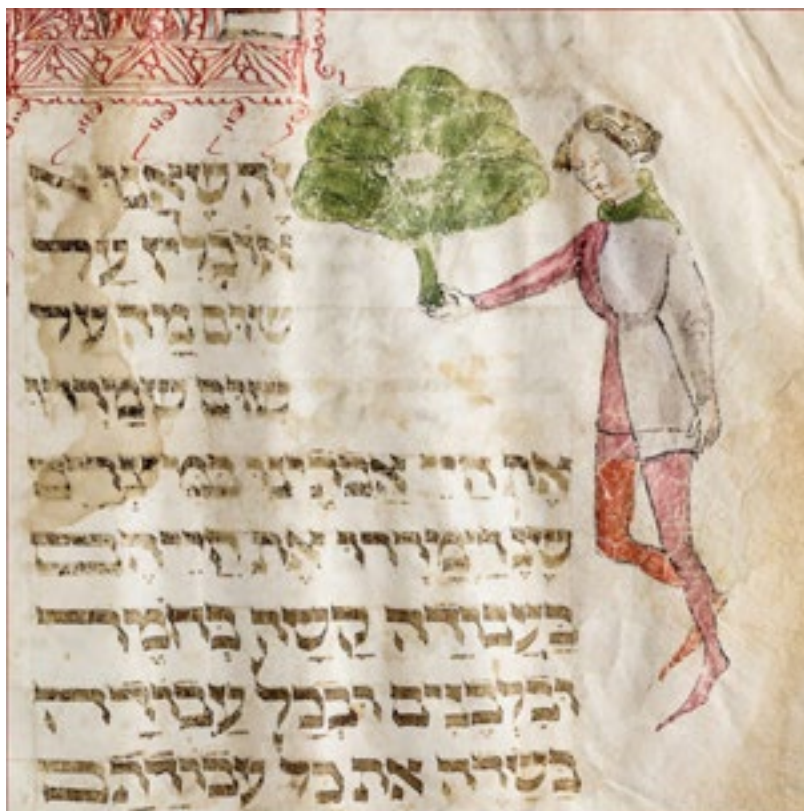 זה שאנו
אוכלין על
שום מה על
שום שמררו
את חיי אבותינו במצרים
שנ וימררו את חייהם
בעבודה קשה בחמר
ובלבנים ובכל עבודה
בשדה את כל עבודתם